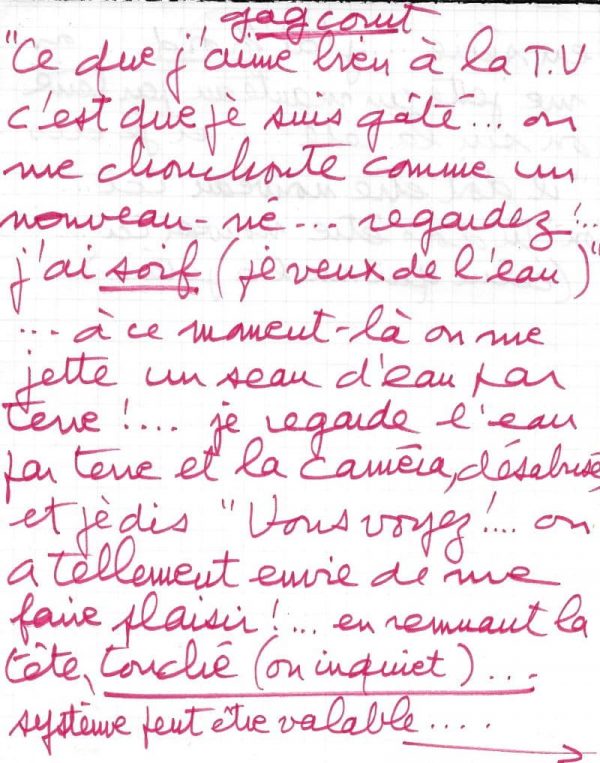 gag court
"Ce que j'aime bien à la T.V
c'est que je suis gâté... on
me chouchoute comme un
nouveau-né... regardez!...
j'ai soif (je veux de l'eau)"
... à ce moment-là on me
jette un seau d'eau par
terre!.... je regarde l'eau
par terre et la caméra, désabusé,
et je dis "Vous voyez!... on
a tellement envie de me
faire plaisir!... en remuant la
tête, touché (ou inquiet)...
système peut être valable....